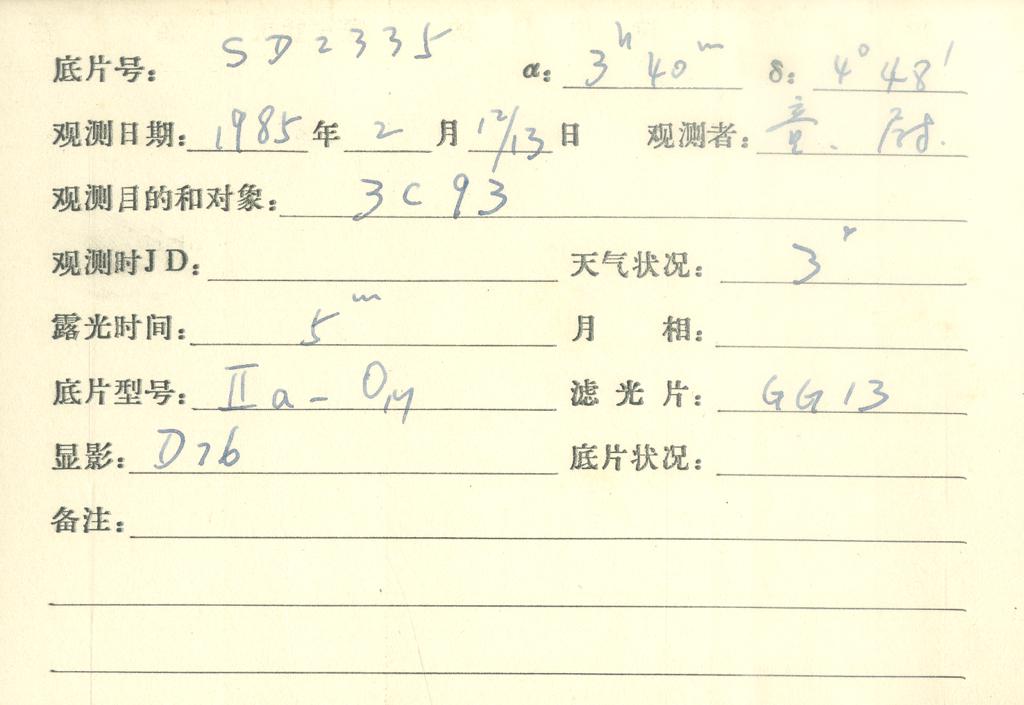 底片号: SD2335 α: 3h 40m δ: 4° 48′
观测日期: 1985 年 2 月 12/13 日 观测者: 童.
观测目的和对象: 3C93
观测时JD: 天气状况: 3
露光时间: 5m 月 相:
底片型号: IIa-O 滤光片: GG13
显影: D76 底片状况:
备注: